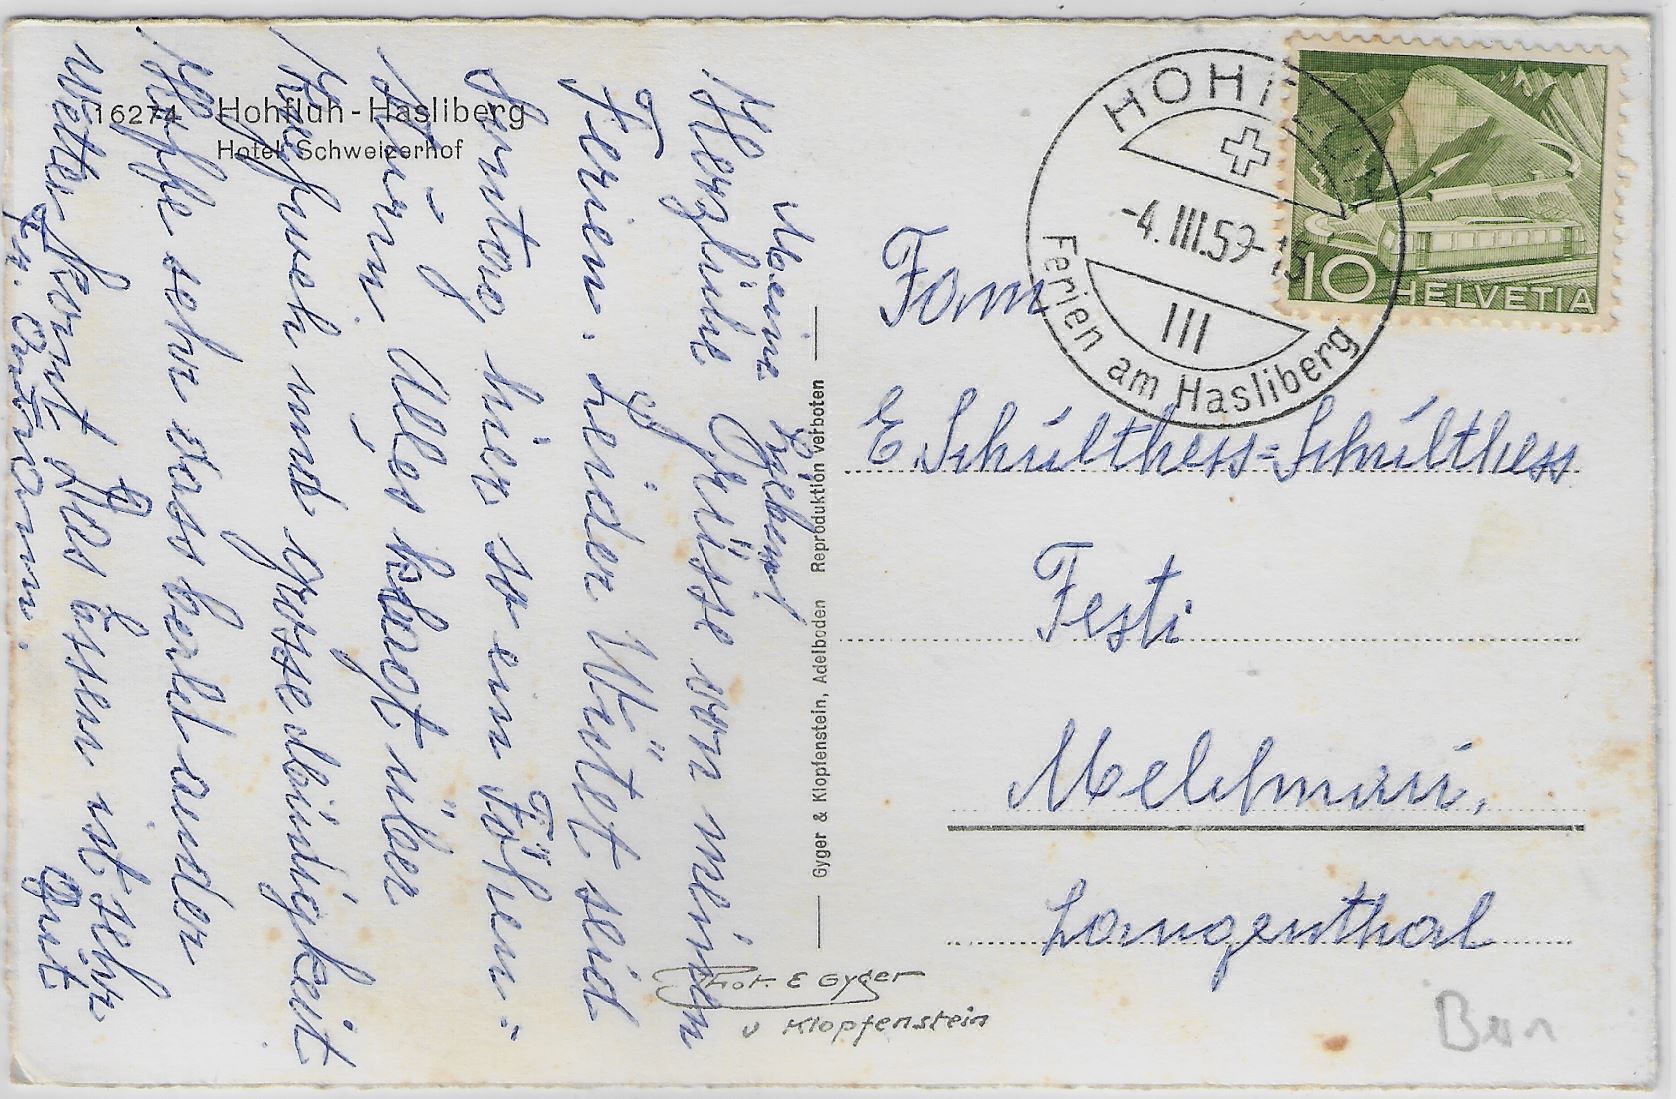 16274 Hohfluh-Hasliberg
Hotel Schweizerhof
Meine Lieben!
Herzliche Grüsse von meinen
Ferien. Leider Wütet seid
Sontag hier so ein Föhen-
Stürm, Alles klagt über
Kopfweh und grosse
Hoffe sehr dass bald ander
Wetter komt. Das Essen ist sehr
gut
Fr.
Gyger & Klopfenstein, Adelboden Reproduktion verboten
Phot. E Gyger
u Klopfenstein
HOHFLUH
-4.III.59-15
III
Ferien am Hasliberg
10 HELVETIA
Fam
E. Schülthess=Schülthess
Festi
Melchnaü,
Langenthal
Bern